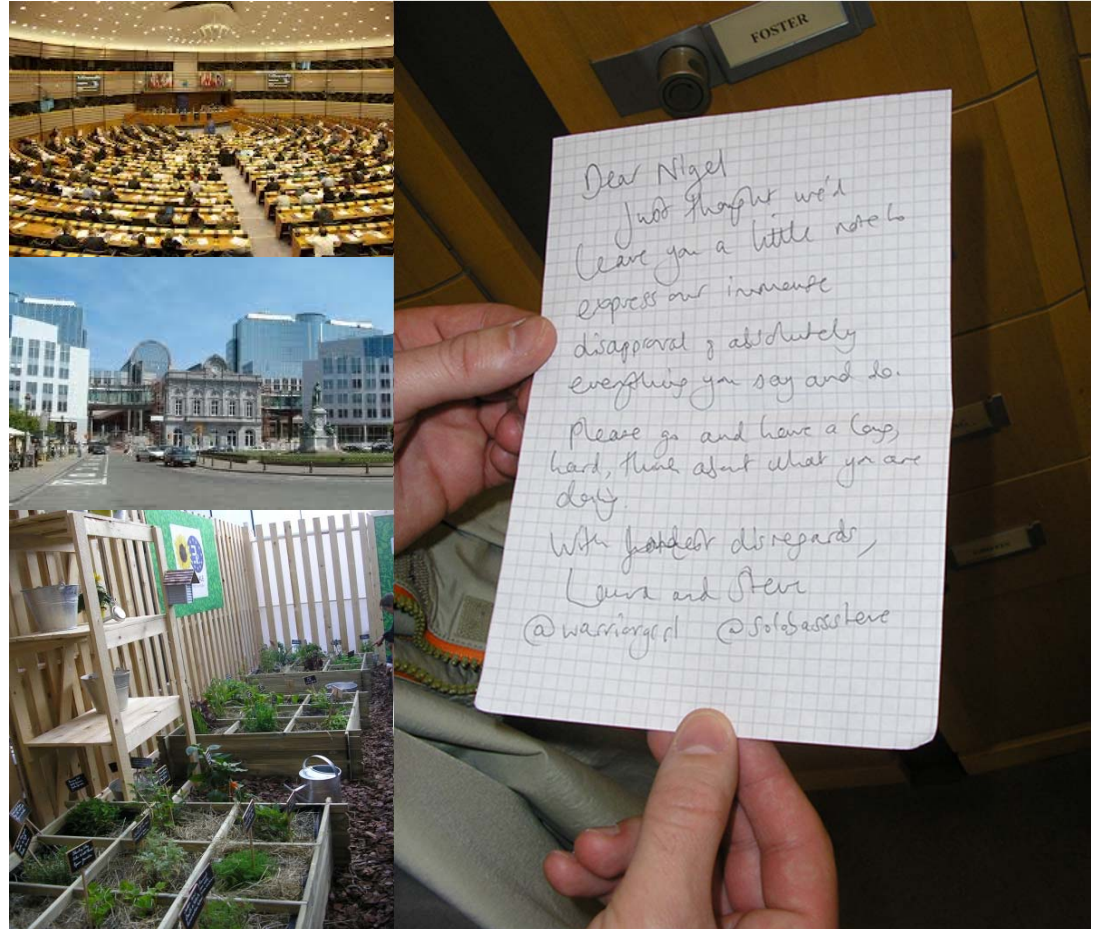 FOSTER
Dear Nigel
Just thought we'd
leave you a little note to
express our immense
disapproval of absolutely
everything you say and do.
Please go and have a long,
hard, think about what you are
doing.
With disregards,
Laura and Steve
@warriorgrrl @solobasssteve